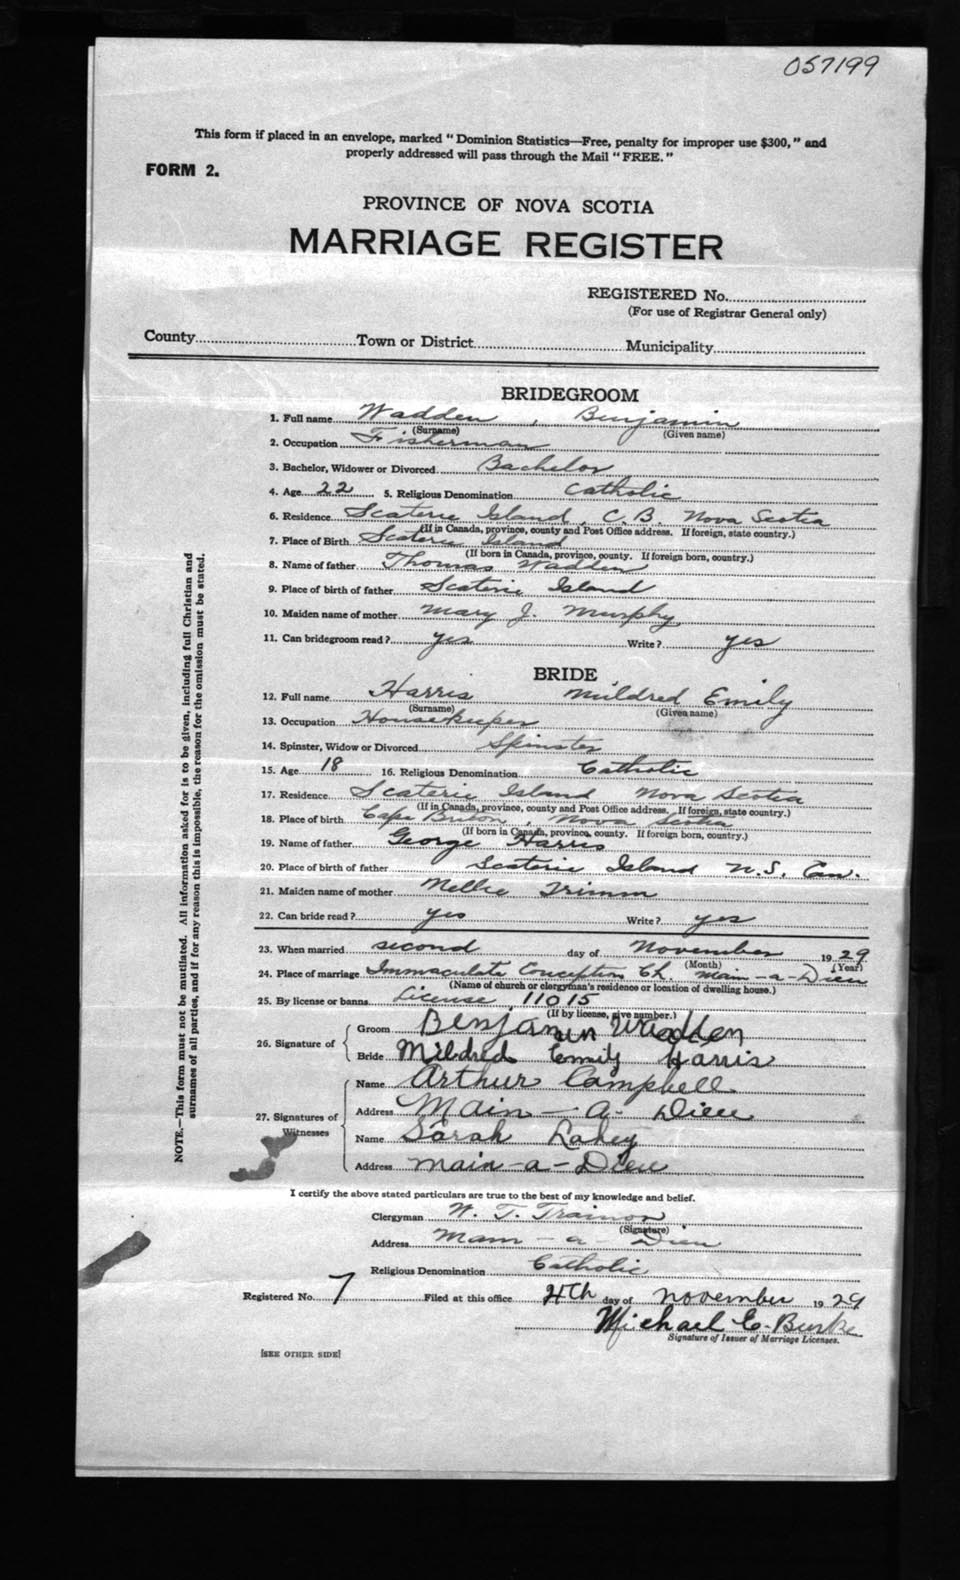 057199
This form if placed in an envelope, marked "Dominion Statistics—Free, penalty for improper use $300," and
properly addressed will pass through the Mail "FREE."
FORM 2.
PROVINCE OF NOVA SCOTIA
MARRIAGE REGISTER
REGISTERED No.
(For use of Registrar General only)
County Town or District Municipality
BRIDEGROOM
1. Full name Wadden, Benjamin
(Surname) (Given name)
2. Occupation Fisherman
3. Bachelor, Widower or Divorced Bachelor
4. Age 22 5. Religious Denomination Catholic
6. Residence Scaterie Island, C.B. Nova Scotia
(If in Canada, province, county and Post Office address. If foreign, state country.)
7. Place of Birth Scaterie Island
(If born in Canada, province, county. If foreign born, country.)
8. Name of father Thomas Wadden
9. Place of birth of father Scaterie Island
10. Maiden name of mother Mary J. Murphy
11. Can bridegroom read? yes Write? yes
BRIDE
12. Full name Harris Mildred Emily
(Surname) (Given name)
13. Occupation Housekeeper
14. Spinster, Widow or Divorced Spinster
15. Age 18 16. Religious Denomination Catholic
17. Residence Scaterie Island Nova Scotia
(If in Canada, province, county and Post Office address. If foreign, state country.)
18. Place of birth Cape Breton, Nova Scotia
(If born in Canada, province, county. If foreign born, country.)
19. Name of father George Harris
20. Place of birth of father Scaterie Island N.S. Can.
21. Maiden name of mother Nellie Trimm
22. Can bride read? yes Write? yes
23. When married second day of November 1929
(Month) (Year)
24. Place of marriage Immaculate Conception Ch. Main-a-Dieu
(Name of church or clergyman's residence or location of dwelling house.)
25. By license or banns License 11015
(If by license, give number.)
26. Signature of Groom Benjamin Wadden
Bride Mildred Emily Harris
27. Signatures of Witnesses Name Arthur Campbell
Address Main-a-Dieu
Name Sarah Lahey
Address Main-a-Dieu
I certify the above stated particulars are true to the best of my knowledge and belief.
Clergyman W. T. Trainor
(Signature)
Address Main-a-Dieu
Religious Denomination Catholic
Registered No. 7 Filed at this office 4th day of November 1929
Michael C. Burke
Signature of Issuer of Marriage Licenses.
[SEE OTHER SIDE]
NOTE.—This form must not be mutilated. All information asked for is to be given, including full Christian and
surnames of all parties, and if for any reason this is impossible, the reason for the omission must be stated.